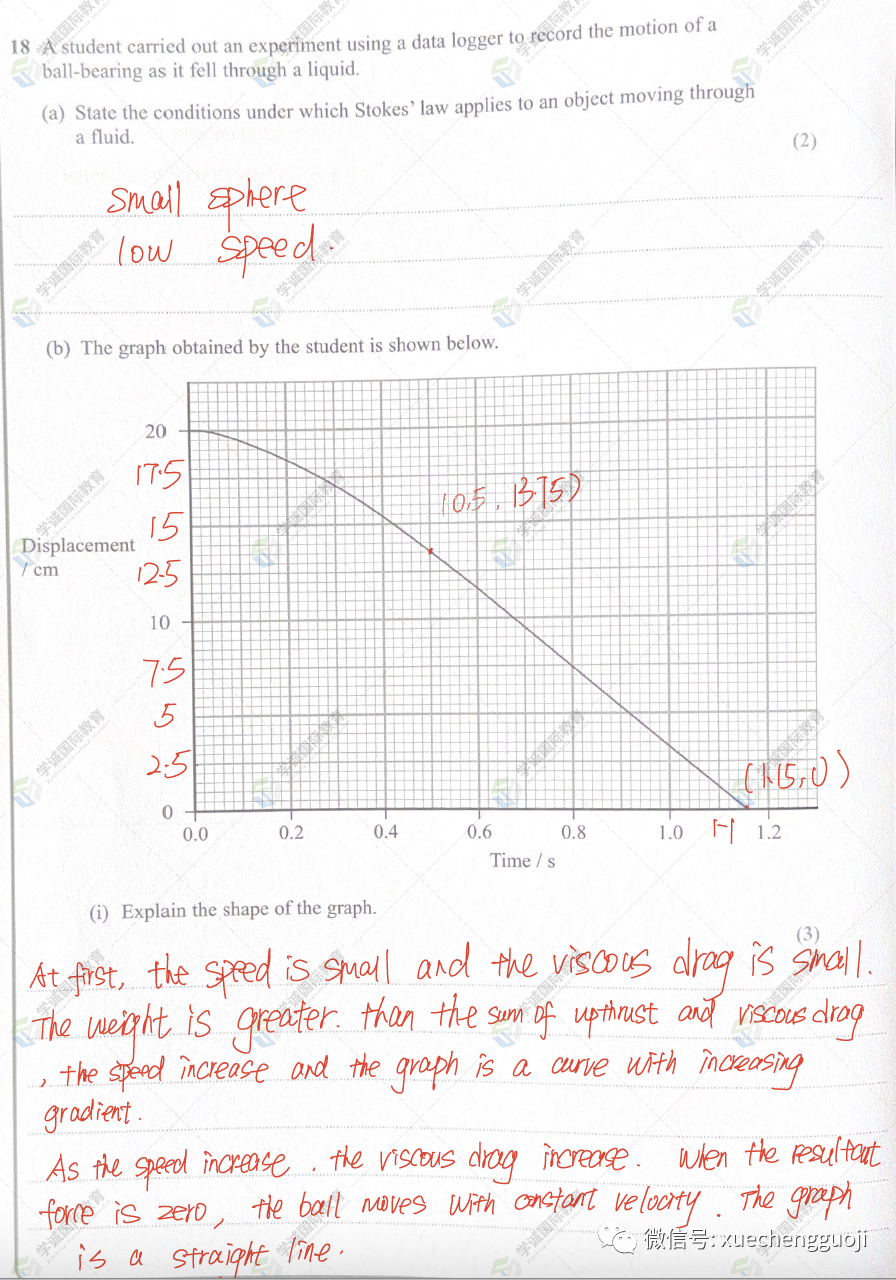 18 A student carried out an experiment using a data logger to record the motion of a
ball-bearing as it fell through a liquid.
(a) State the conditions under which Stokes' law applies to an object moving through
a fluid.
(2)
small sphere
low speed.
(b) The graph obtained by the student is shown below.
20
17.5
(0.5, 13.75)
15
Displacement
/ cm
12.5
10
7.5
5
2.5
(1.15, 0)
0
0.0 0.2 0.4 0.6 0.8 1.0 1.2
Time / s
(i) Explain the shape of the graph.
(3)
At first, the speed is small and the viscous drag is small.
The weight is greater. than the sum of upthrust and viscous drag
, the speed increase and the graph is a curve with increasing
gradient.
As the speed increase, the viscous drag increase. When the resultant
force is zero, the ball moves with constant velocity. The graph
is a straight line.
微信号: xuechengguoji
学诚国际教育